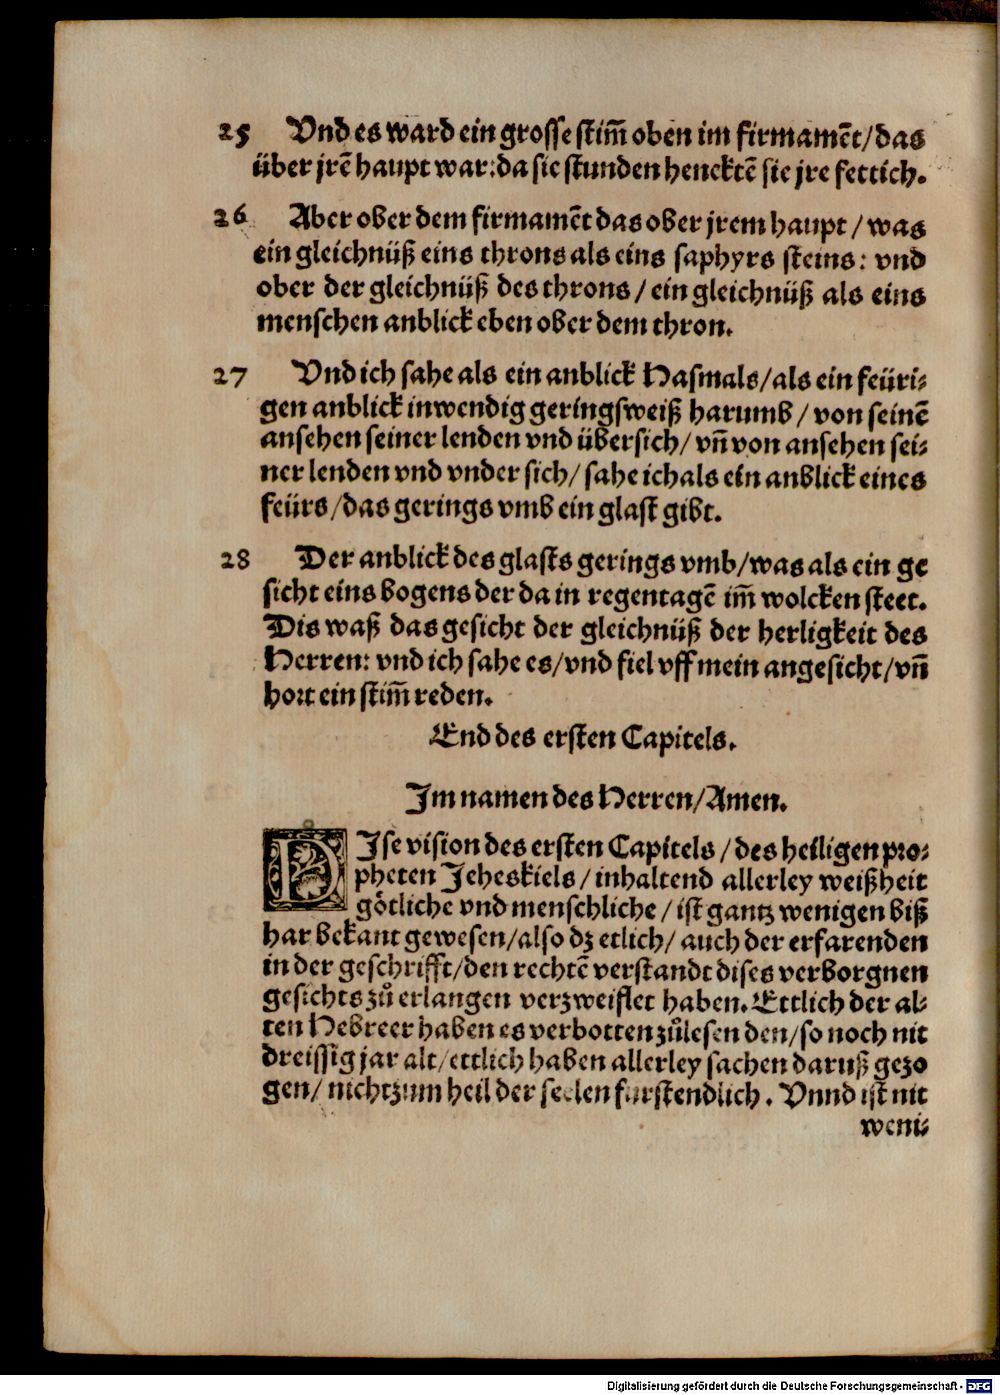 25 Vnd es ward ein grosse stim̃ oben im firmamẽt/das
über jrẽ haupt war: da sie stunden hencktẽ sie jre fettich.
26 Aber ober dem firmamẽt das ober jrem haupt / was
ein gleichnüß eins throns als eins saphyrs steins: vnd
ober der gleichnüß des throns / ein gleichnüß als eins
menschen anblick eben ober dem thron.
27 Vnd ich sahe als ein anblick Hasmals/als ein feüri⸗
gen anblick inwendig geringsweiß harumb / von seinẽ
ansehen seiner lenden vnd übersich/ vñ von ansehen sei⸗
ner lenden vnd vnder sich/ sahe ich als ein anblick eines
feürs/das gerings vmb ein glast gibt.
28 Der anblick des glasts gerings vmb/was als ein ge
sicht eins bogens der da in regentagẽ im̃ wolcken steet.
Dis waß das gesicht der gleichnüß der herligkeit des
Herren: vnd ich sahe es/vnd fiel vff mein angesicht/vñ
hort ein stim̃ reden.
End des ersten Capitels.
Im namen des Herren/Amen.
DIse vision des ersten Capitels / des heiligen pro⸗
pheten Jeheskiels / inhaltend allerley weißheit
goͤtliche vnd menschliche / ist gantz wenigen biß
har bekant gewesen/also dz etlich/ auch der erfarenden
in der geschrifft/den rechtẽ verstandt dises verborgnen
gesichts zů erlangen verzweiflet haben. Ettlich der al⸗
ten Hebreer haben es verbotten zůlesen den/so noch nit
dreissig jar alt/ettlich haben allerley sachen daruß gezo
gen/ nicht zum heil der seelen furstendlich. Vnnd ist nit
weni⸗
Digitalisierung gefördert durch die Deutsche Forschungsgemeinschaft - DFG